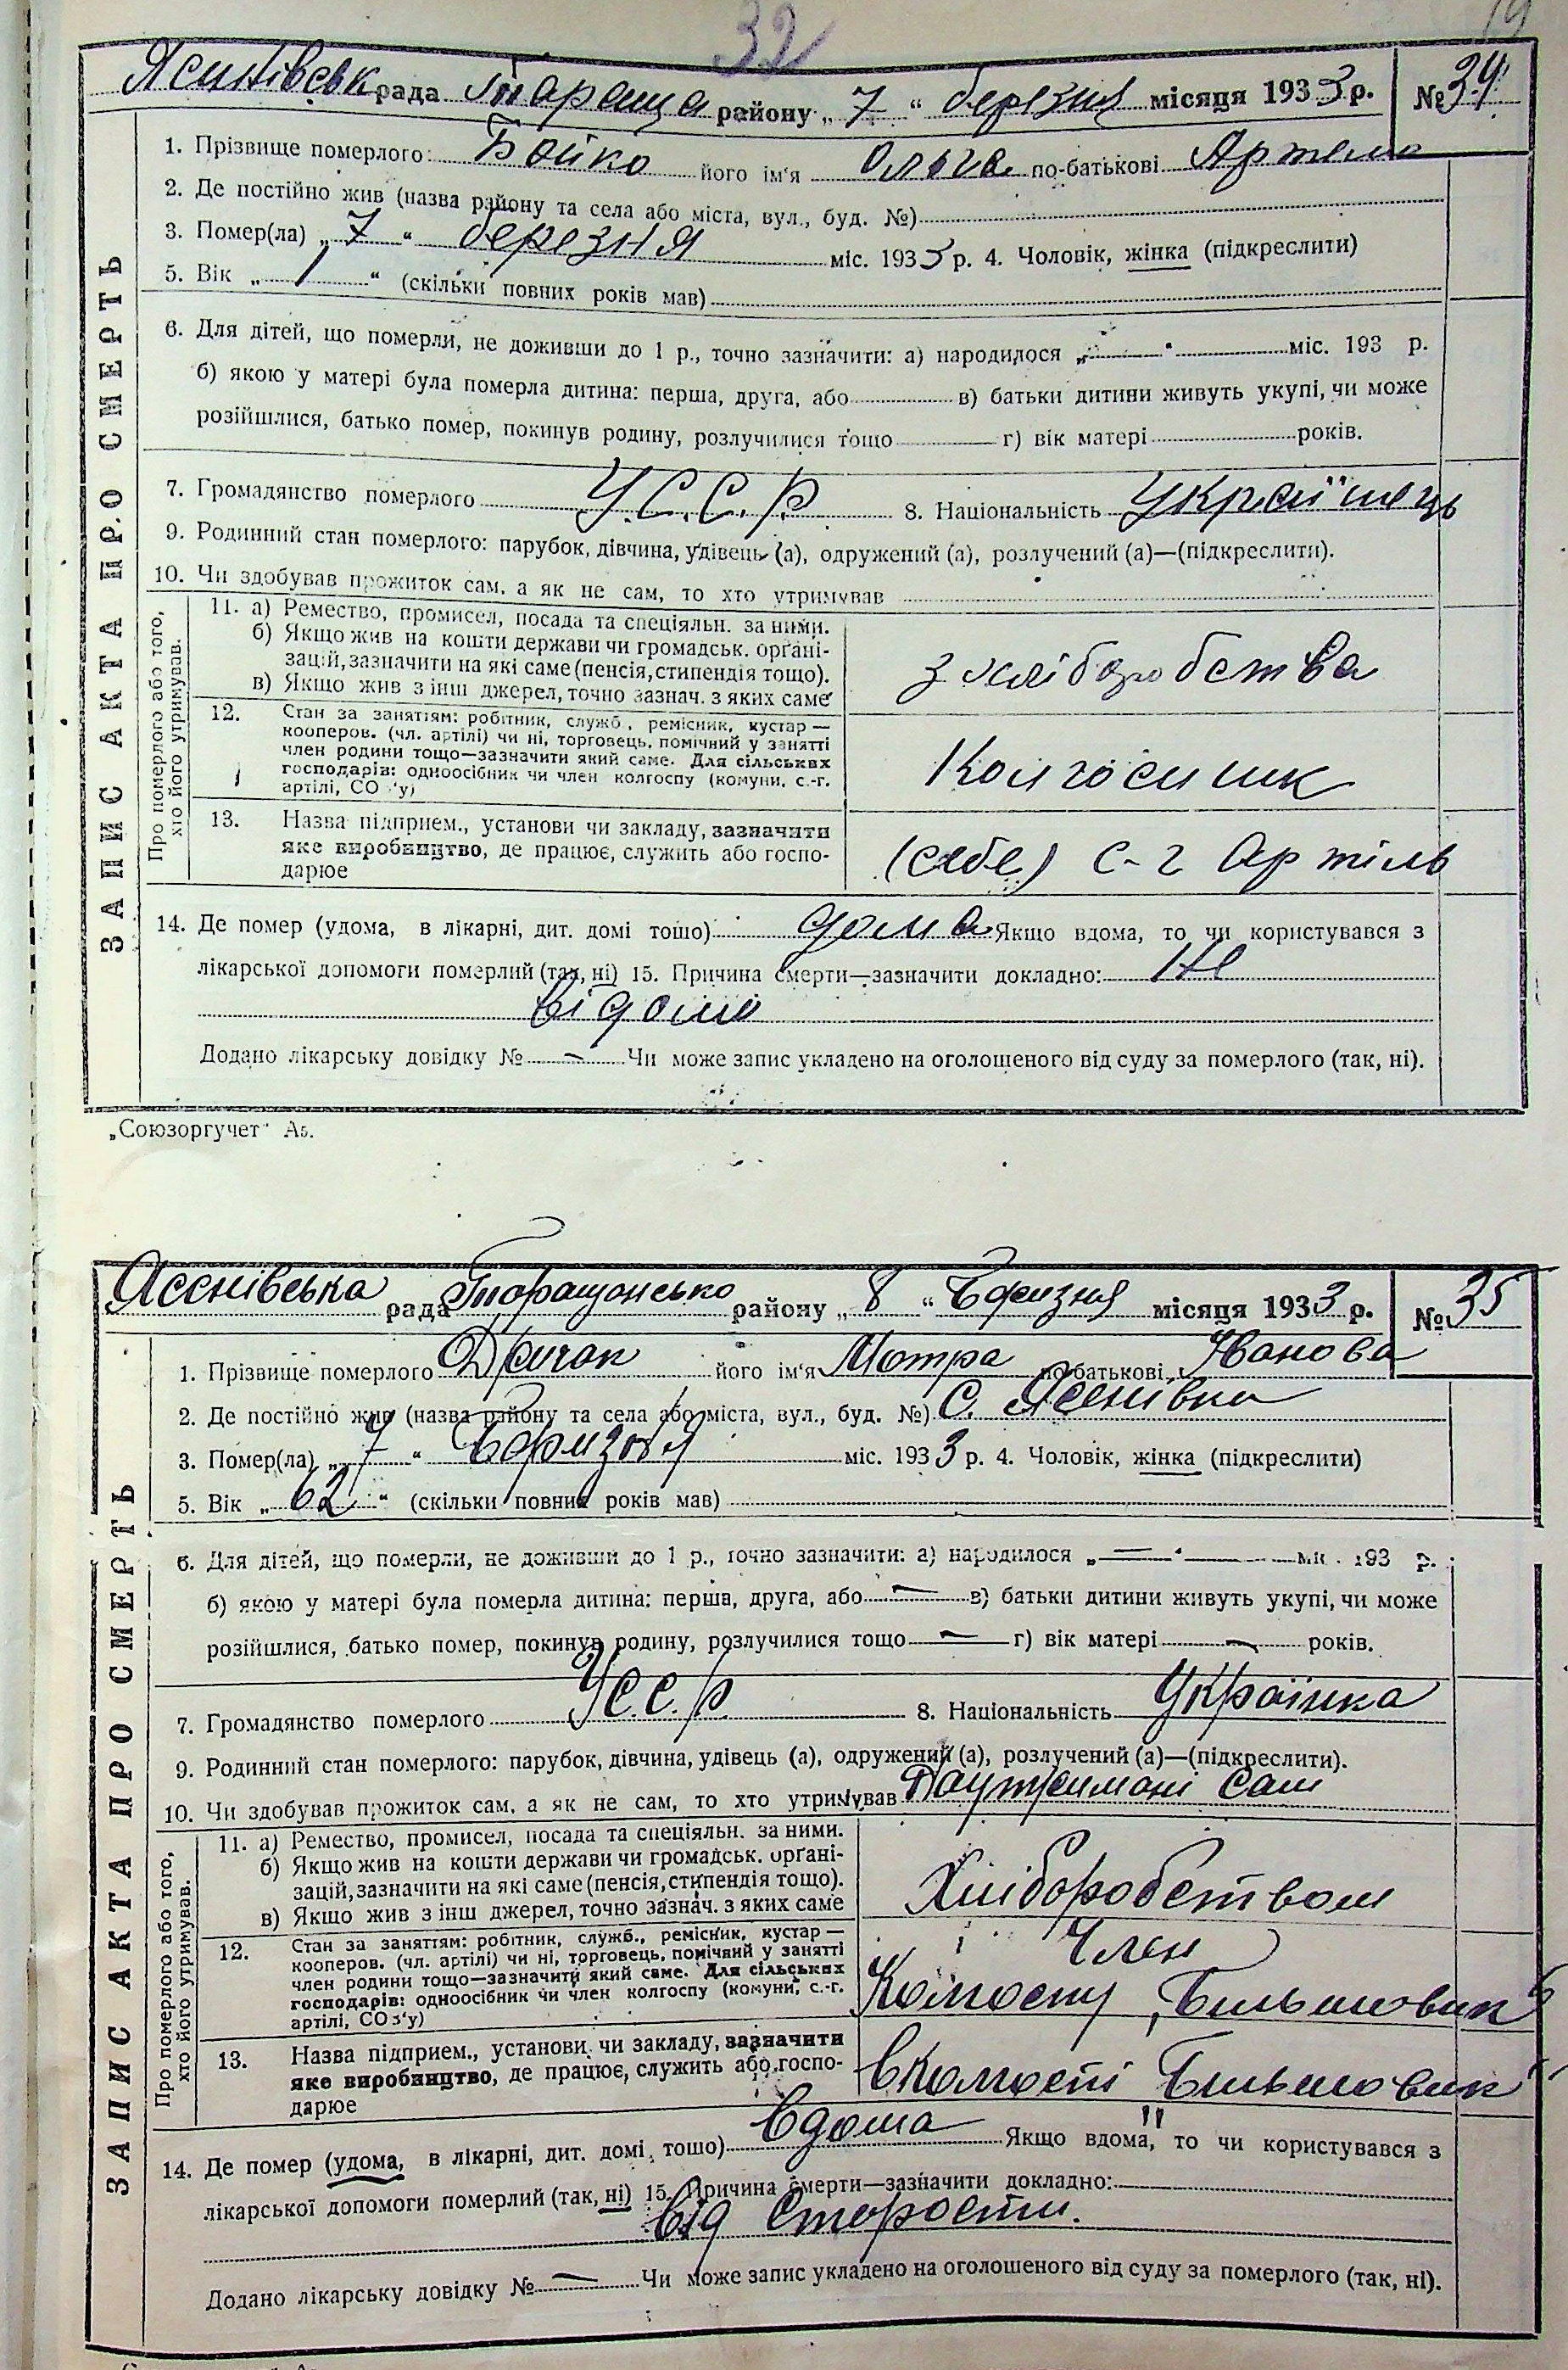 32
19
Яситівськ рада Тараща району „ 7 “ березня місяця 1933 р. № 34
1. Прізвище померлого: Бойко його ім'я Ольга по-батькові Артем
2. Де постійно жив (назва району та села або міста, вул., буд. №)
3. Помер(ла) „ 7 “ березня міс. 1933 р. 4. Чоловік, жінка (підкреслити)
5. Вік „ 1 “ (скільки повних років мав)
6. Для дітей, що померли, не доживши до 1 р., точно зазначити: а) народилося „ “ міс. 193 р.
б) якою у матері була померла дитина: перша, друга, або в) батьки дитини живуть укупі, чи може
розійшлися, батько помер, покинув родину, розлучилися тощо г) вік матері років.
7. Громадянство померлого У.С.С.Р. 8. Національність Українець
9. Родинний стан померлого: парубок, дівчина, удівець (а), одружений (а), розлучений (а)—(підкреслити).
10. Чи здобував прожиток сам, а як не сам, то хто утримував
ЗАПИС АКТА ПРО СМЕРТЬ
Про померлого або того,
хто його утримував.
11. а) Ремество, промисел, посада та спеціяльн. за ними.
б) Якщо жив на кошти держави чи громадськ. органі-
зацій, зазначити на які саме (пенсія, стипендія тощо).
в) Якщо жив з інш джерел, точно зазнач. з яких саме
з хліборобства
12. Стан за заняттям: робітник, служб., ремісник, кустар—
кооперов. (чл. артілі) чи ні, торговець, помічний у занятті
член родини тощо—зазначити який саме. Для сільських
господарів: одноосібник чи член колгоспу (комуни, с.-г.
артілі, СО 'у)
Колгоспник
13. Назва підприєм., установи чи закладу, зазначити
яке виробництво, де працює, служить або госпо-
дарює
(себе) с-г Артіль
14. Де помер (удома, в лікарні, дит. домі тощо) дома Якщо вдома, то чи користувався з
лікарської допомоги померлий (так, ні) 15. Причина смерти—зазначити докладно: Не
відомо
Додано лікарську довідку № — Чи може запис укладено на оголошеного від суду за померлого (так, ні).
„Союзоргучет“ А5.
Ясенівська рада Таращансько району „ 8 “ Березня місяця 1933 р. № 35
1. Прізвище померлого його ім'я Мотра по-батькові Іванова
2. Де постійно жив (назва району та села або міста, вул., буд. №) С. Ясенівка
3. Помер(ла) „ 7 “ Березня міс. 1933 р. 4. Чоловік, жінка (підкреслити)
5. Вік „ 62 “ (скільки повних років мав)
6. Для дітей, що померли, не доживши до 1 р., точно зазначити: а) народилося „ — “ — міс. 193 р.
б) якою у матері була померла дитина: перша, друга, або — в) батьки дитини живуть укупі, чи може
розійшлися, батько помер, покинув родину, розлучилися тощо — г) вік матері — років.
7. Громадянство померлого УС.С.Р. 8. Національність Українка
9. Родинний стан померлого: парубок, дівчина, удівець (а), одружений (а), розлучений (а)—(підкреслити).
10. Чи здобував прожиток сам, а як не сам, то хто утримував Сам
ЗАПИС АКТА ПРО СМЕРТЬ
Про померлого або того,
хто його утримував.
11. а) Ремество, промисел, посада та спеціяльн. за ними.
б) Якщо жив на кошти держави чи громадськ. органі-
зацій, зазначити на які саме (пенсія, стипендія тощо).
в) Якщо жив з інш джерел, точно зазнач. з яких саме
Хліборобством
12. Стан за заняттям: робітник, служб., ремісник, кустар—
кооперов. (чл. артілі) чи ні, торговець, помічний у занятті
член родини тощо—зазначити який саме. Для сільських
господарів: одноосібник чи член колгоспу (комуни, с.-г.
артілі, СОЗ'у)
Член
Колгоспу „Більшовик“
13. Назва підприєм., установи чи закладу, зазначити
яке виробництво, де працює, служить або госпо-
дарює
в Колгоспі Більшовик"
14. Де помер (удома, в лікарні, дит. домі, тощо) вдома Якщо вдома, то чи користувався з
лікарської допомоги померлий (так, ні) 15. Причина смерти—зазначити докладно:
від Старости.
Додано лікарську довідку № — Чи може запис укладено на оголошеного від суду за померлого (так, ні).